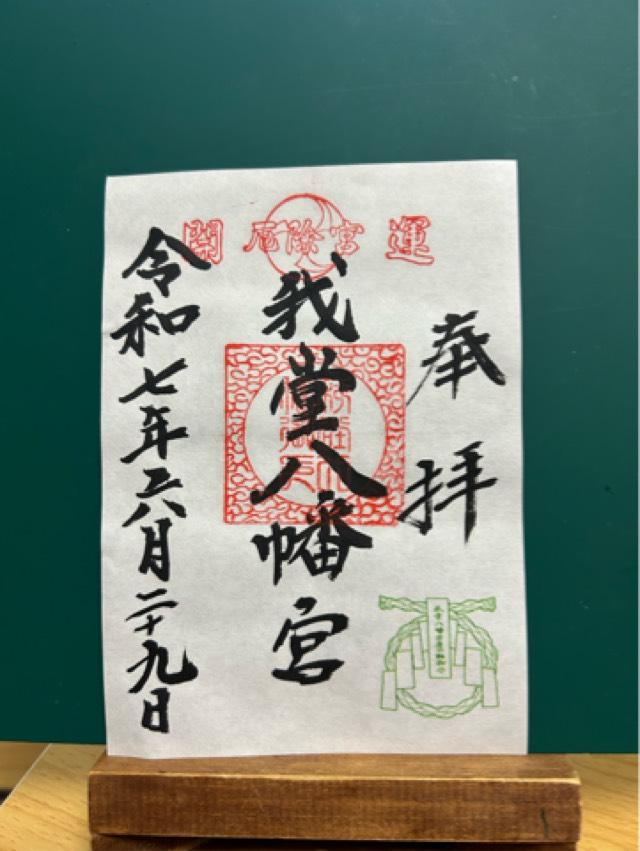 開 厄除宮 運
奉拝
我堂八幡宮
令和七年六月二十九日